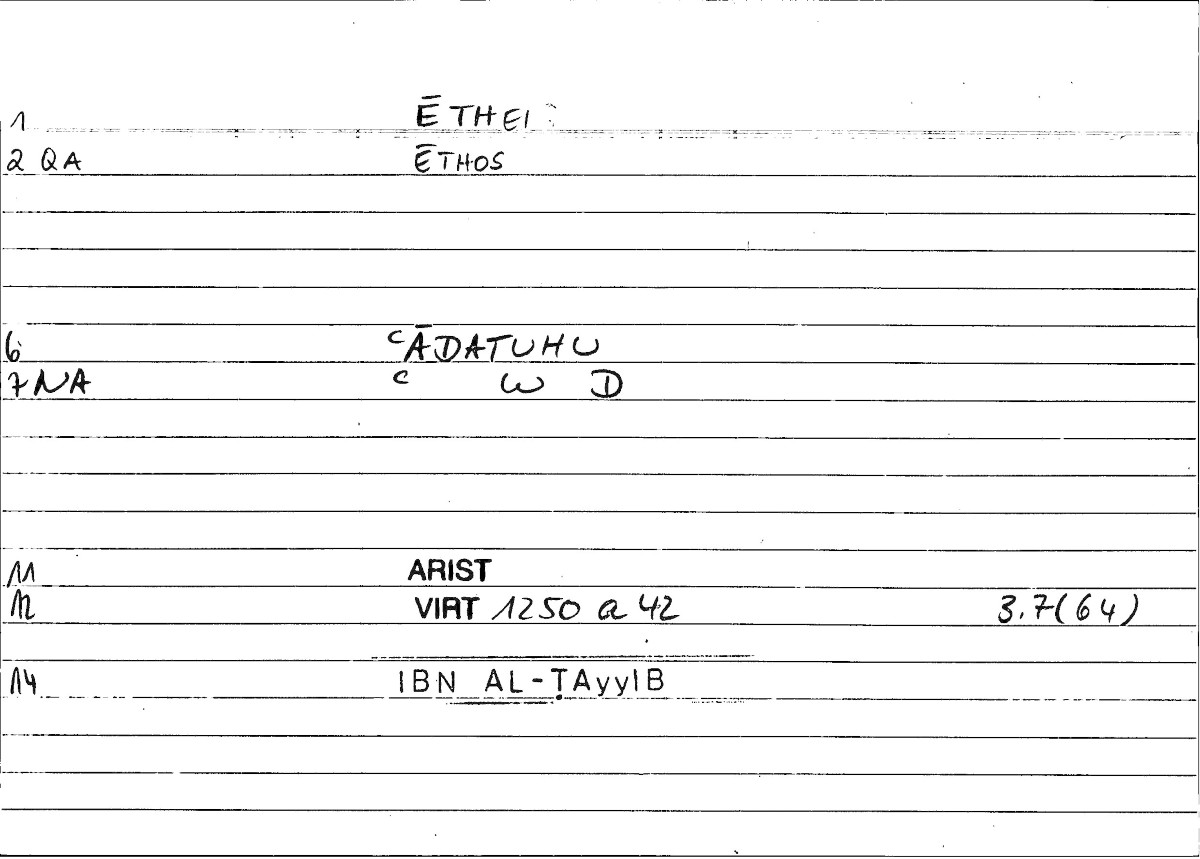 1 ĒTHEI
2 QA ĒTHOS
6 ᶜĀDATUHU
7 NA ᶜ W D
11 ARIST
12 VIRT 1250 a 42 3.7(64)
14 IBN AL-ṬAyyIB